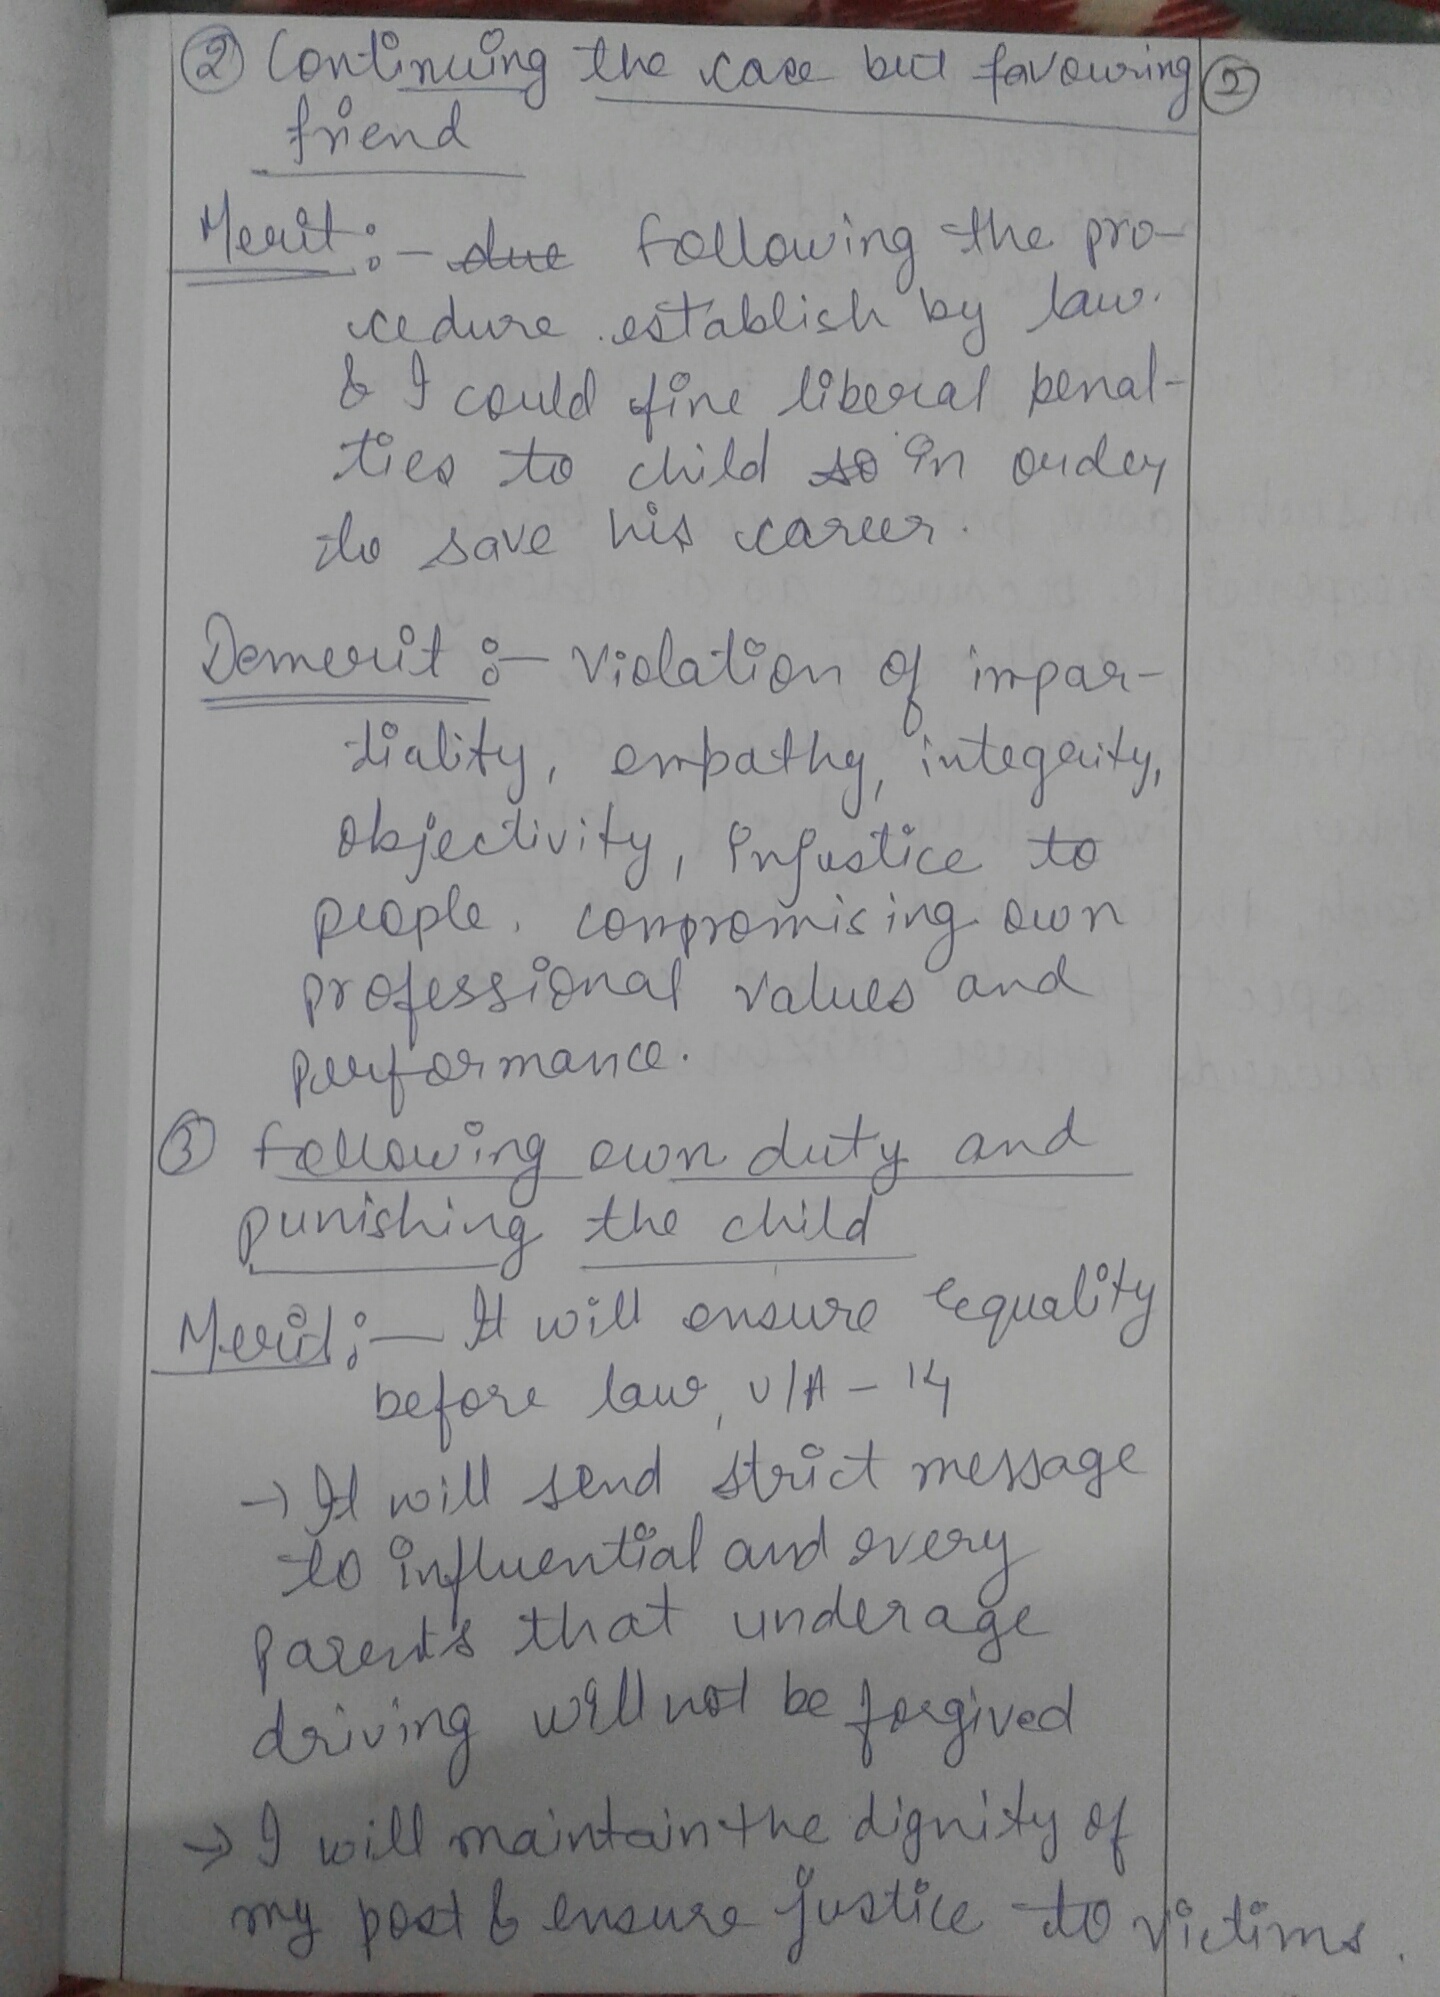 ② Continuing the case but favouring ②
friend
Merit :- due following the pro-
cedure establish by law.
& I could fine liberal penal-
ties to child so in order
to save his career.
Demerit :- Violation of impar-
tiality, empathy, integrity,
objectivity, injustice to
people. compromising own
professional values and
performance.
③ following own duty and
punishing the child
Merit :- It will ensure equality
before law, U/A - 14
→ It will send strict message
to influential and every
parents that underage
driving will not be forgived
→ I will maintain the dignity of
my post & ensure justice to victims.